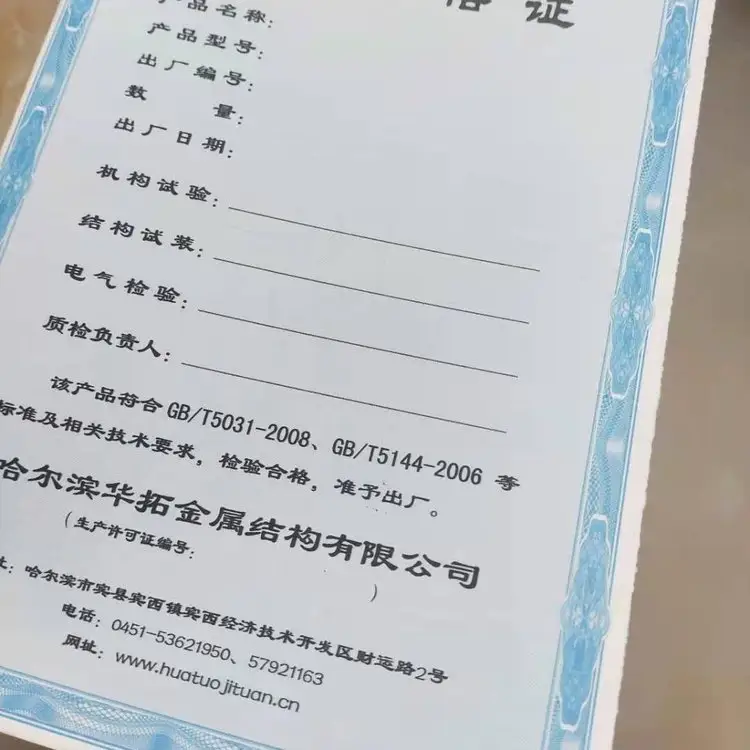 产品名称:
格证
产品型号:
出厂编号:
数量:
出厂日期:
机构试验:
结构试装:
电气检验:
质检负责人:
该产品符合GB/T5031-2008、GB/T5144-2006 等
标准及相关技术要求，检验合格，准予出厂。
哈尔滨华拓金属结构有限公司
(生产许可证编号: )
址: 哈尔滨市宾县宾西镇宾西经济技术开发区财运路2号
电话: 0451-53621950、57921163
网址: www.huatuojituan.cn